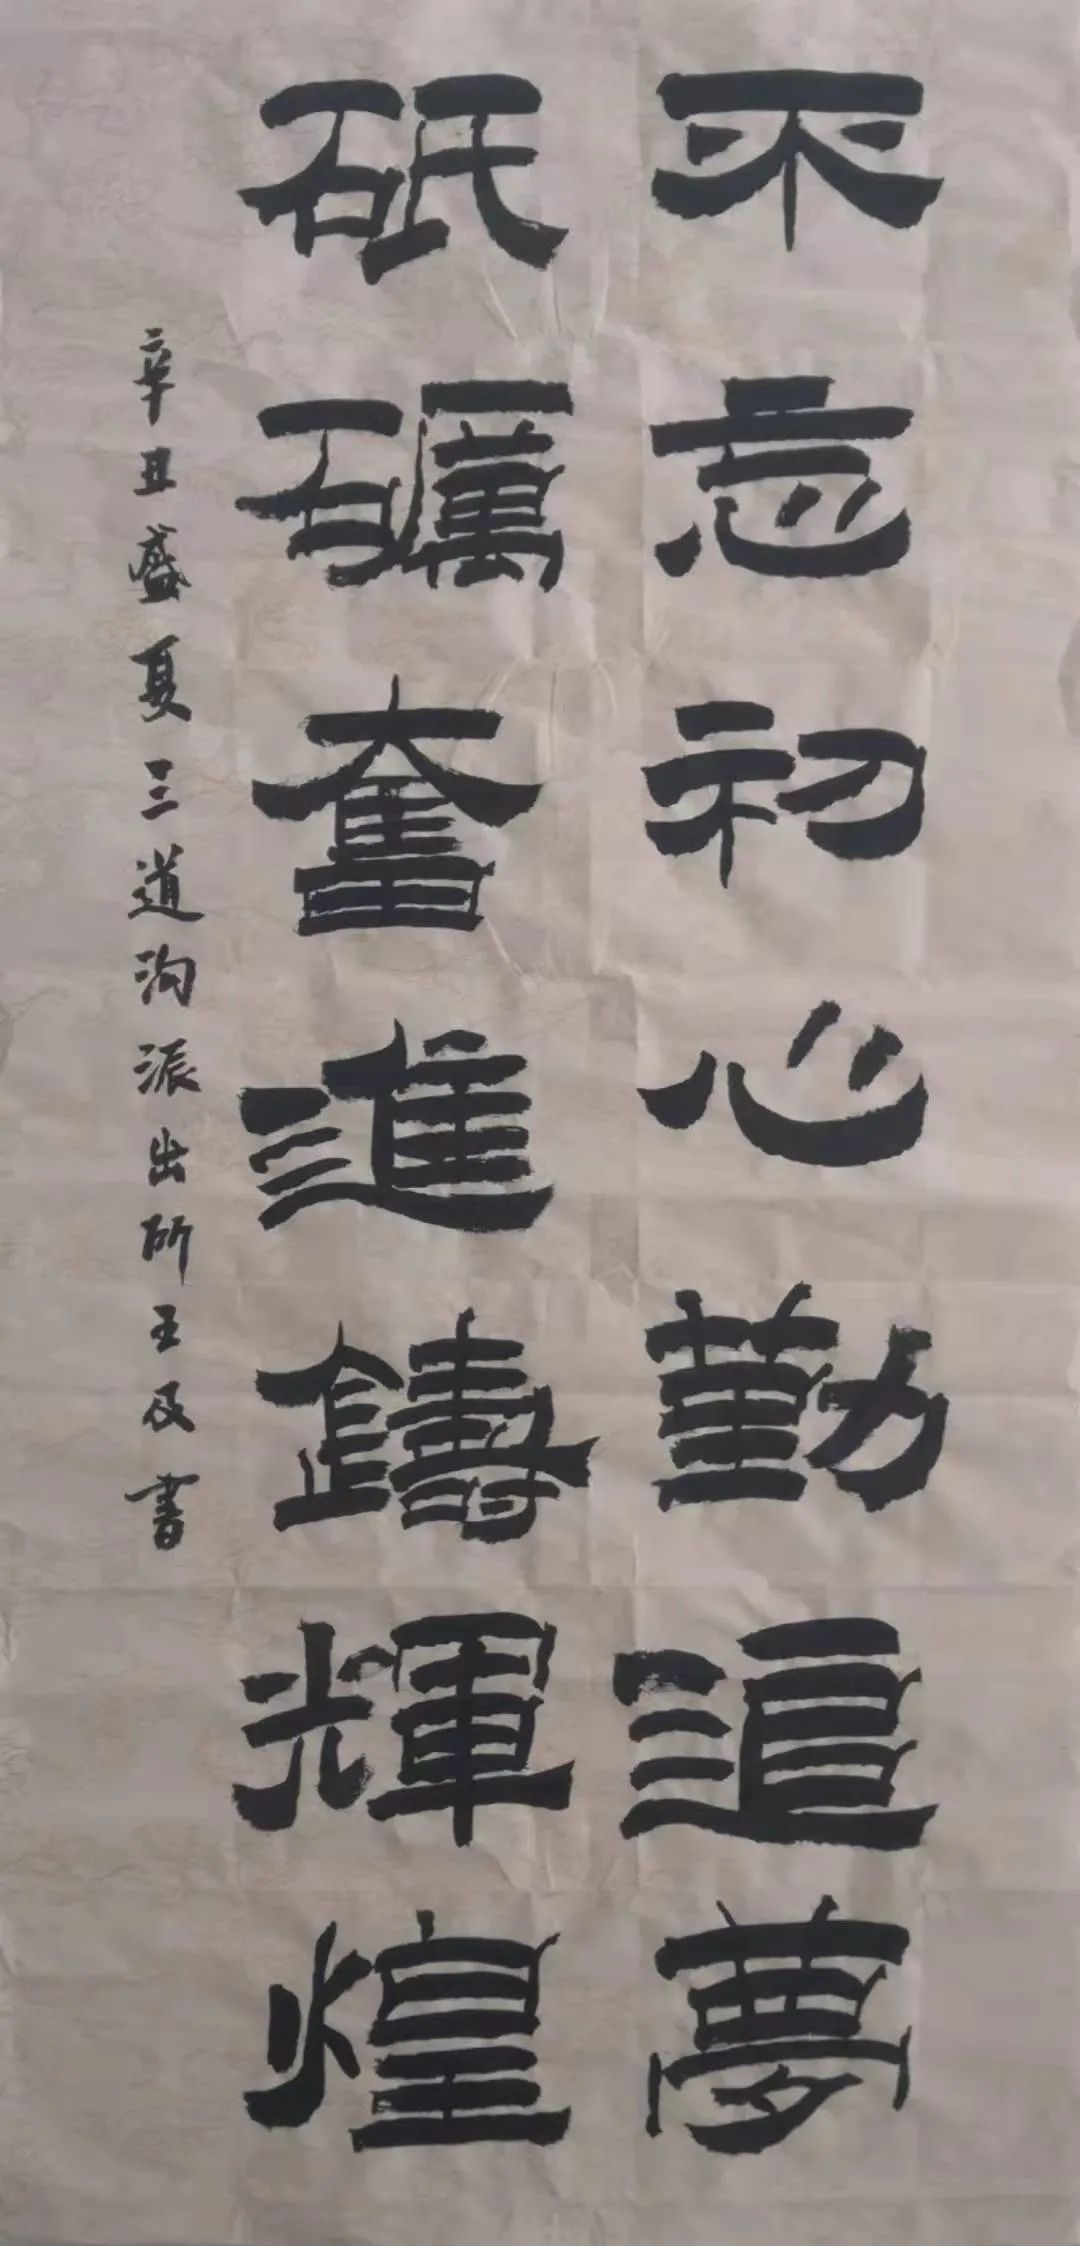 不忘初心勤追夢
砥礪奮進鑄輝煌
辛丑盛夏三道沟派出所王及書